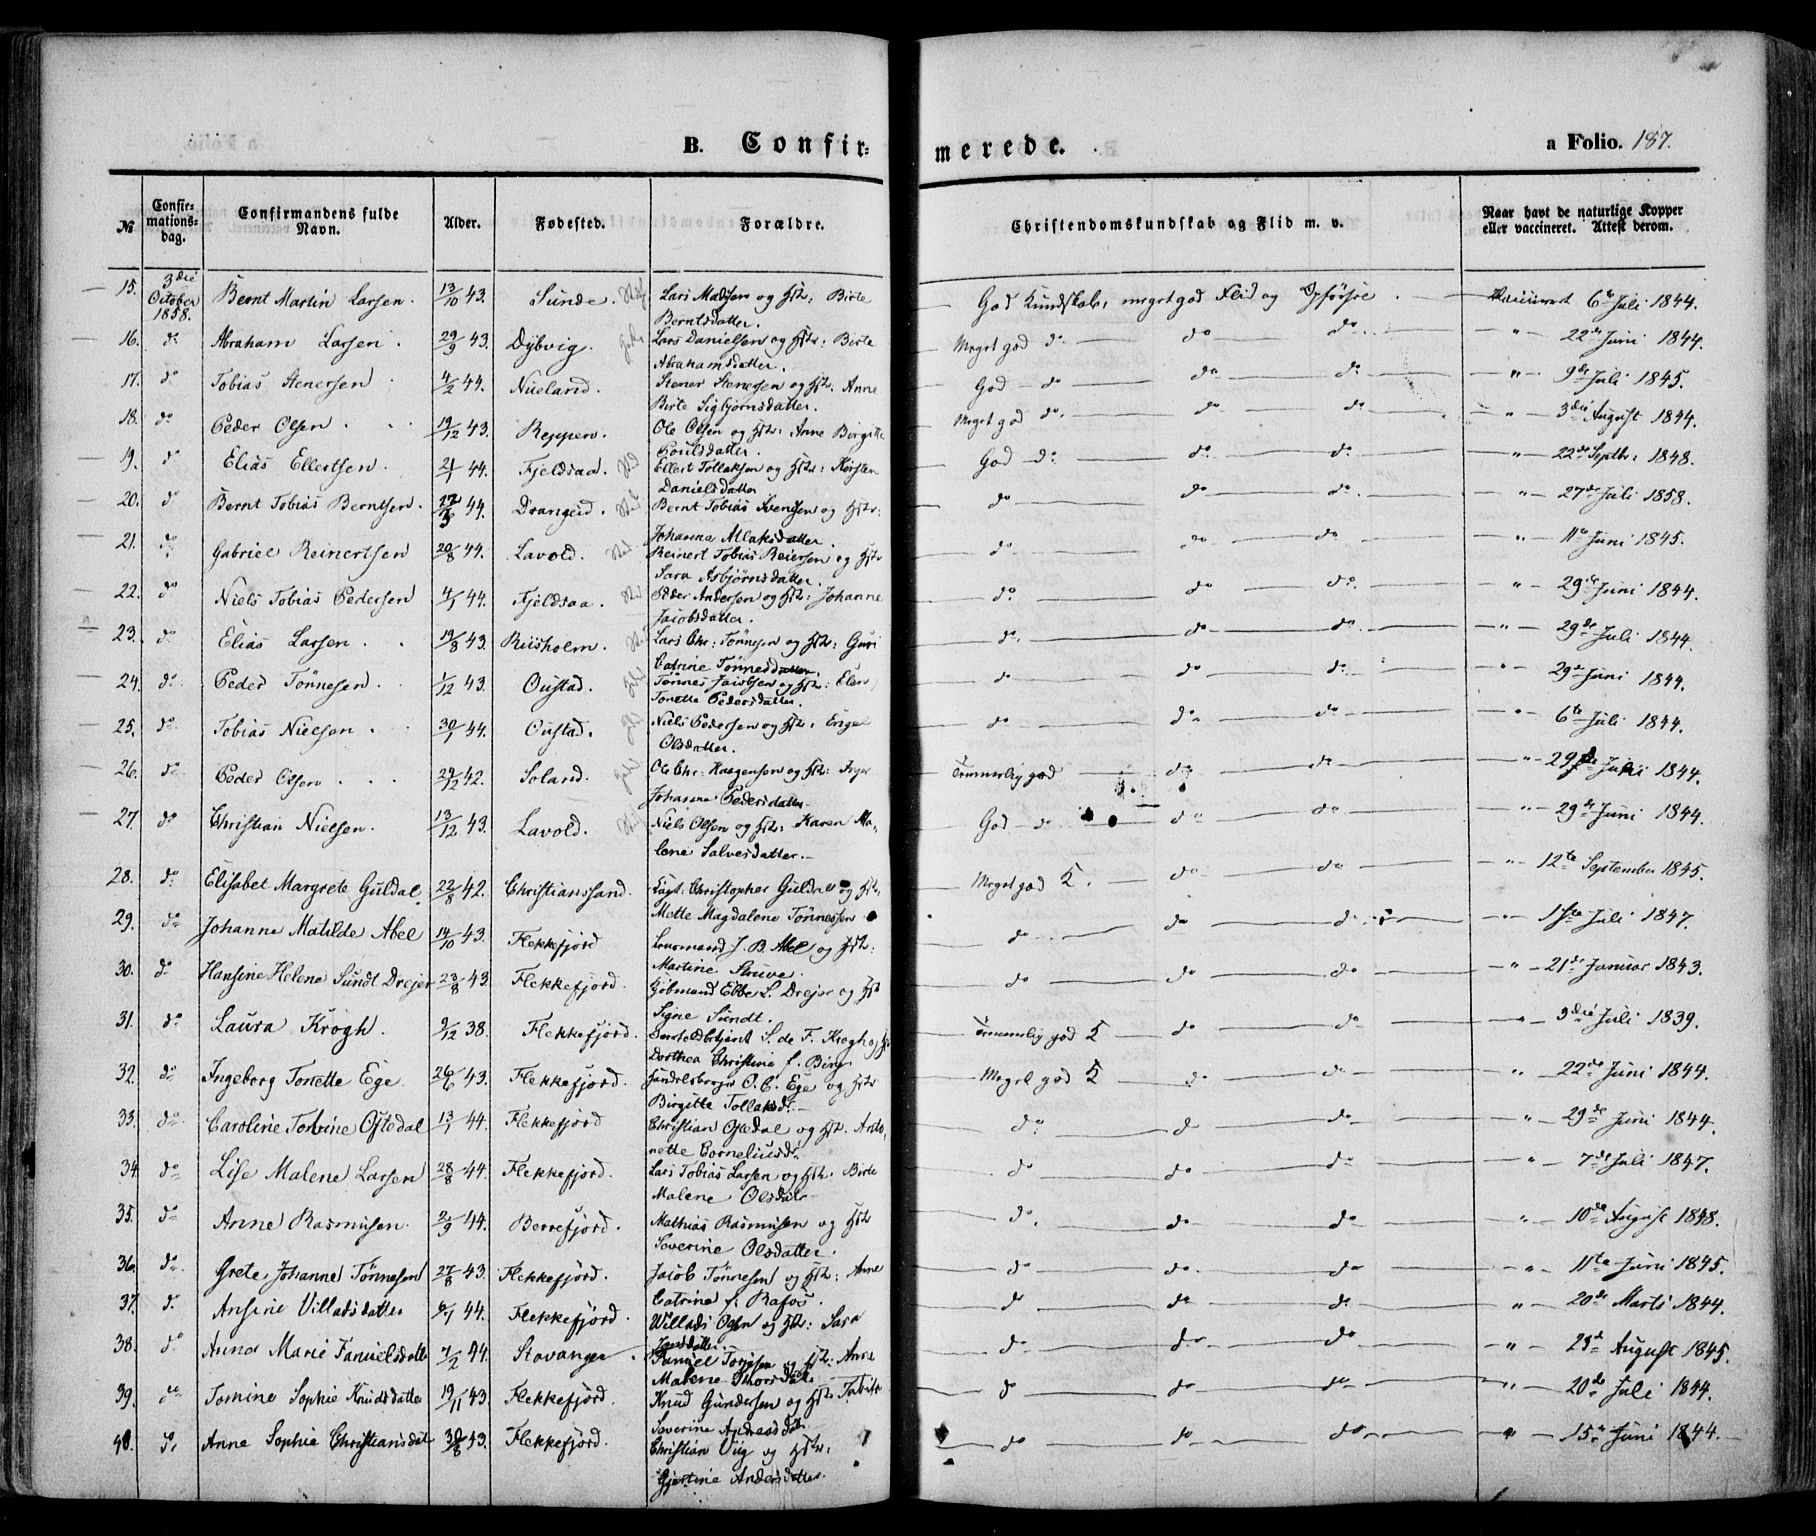 B. Confirmerede. a Folio. 187.
№ Confirmationsdag. Confirmandens fulde Navn. Alder. Fødested. Forældre. Christendomskundskab og Flid m. v. Naar havt de naturlige Kopper eller vaccineret. Attest derom.
15. 3die October 1858. Bernt Martin Larsen. 13/10 43. Sunde. Lars Madsen og Hst: Birte God Kundskab, meget god Flid og Opførsel Vaccineret 6te Juli 1844.
Berntsdatter.
16. do Abraham Larsen. 29/9 43. Dybvig. Lars Danielsen og Hstr: Birte Meget god do do do " 22de Juni 1844.
Abrahamsdatter.
17. do Tobias Stenersen 4/2 44. Nueland. Stener Stenersen og Hstr: Anne God do do do " 9de Juli 1845.
Birte Sigbjørnsdatter.
18. do Peder Olsen 19/12 43. Reppen. Ole Olsen og Hstr: Anne Birgitte Meget god do. do do " 3die August 1844.
Poulsdatter.
19. do Elias Ellertsen. 2/1 44. Fjeldsaa. Ellert Tollaksen og Hstr: Kirsten God do. do do " 22de Septbr: 1848.
Danielsdatter
20. do Bernt Tobias Berntsen. 17/3 44. Drangeid. Bernt Tobias Svensen og Hstr: do do do " 27de Juli 1858.
Johanne Aslaksdatter.
21. do Gabriel Reinertsen 20/8 44. Lavold. Reinert Tobias Reiersen og Hstr do do do " 11te Juni 1845.
Sara Asbjørnsdatter.
22. do Niels Tobias Pedersen 4/1 44. Fjeldsaa. Peder Andersen og Hstr: Johanne do do do. " 29de Juni 1844.
Jacobsdatter.
23. do Elias Larsen. 19/8 43. Riisholm. Lars Chr: Tønnesen og Hstr: Guri do. do do. " 29de Juli 1844.
Catrine Tønnesdatter.
24. do Peder Tønnesen. 1/12 43. Oustad. Tønnes Jacobsen og Hstr: Elen do do do " 29de Juni 1844.
Tonette Pedersdatter.
25. do Tobias Nielsen 30/1 44. Oustad. Niels Pedersen og Hstr: Engel do do do " 6te Juli 1844.
Olsdatter.
26. do Peder Olsen 29/12 42. Soland. Ole Chr: Haagensen og Hstr: Inger Temmelig god do do " 29de Juni 1844.
Johanne Pedersdatter
27. do Christian Nielsen. 13/12 43. Lavold. Niels Olsen og Hstr: Karen Ma- God do do do " 29de Juni 1844.
lene Salvesdatter.
28. do Elisabet Margrete Guldal. 22/8 42. Christianssand. Capt: Christopher Guldal og Hstr. Meget god K. do do " 12te September 1845.
Mette Magdalene Tønnessen
29. do Johanne Matilde Abel 14/10 43. Flekkefjord Lensmand J. B. Abel og Hstr: do do do " 1ste Juli 1847.
Martine Struve.
30. do Hansine Helene Sundt Drejer 23/8 43. Flekkefjord. Kjøbmand Ebbe S. Drejer og Hstr do do do " 21de Januar 1843.
Signe Sundt.
31. do Laura Krogh. 9/12 38. Flekkefjord. S. de F. Krogh og Temmelig god K do do " 3die Juli 1839.
Dorthea Christine f. Berg
32. do Ingeborg Tonette Ege. 26/6 43. Flekkefjord. Handelsborger O. C. Ege og Hstr Meget god K do do " 22de Juni 1844.
Birgitte Tollaksd.
33. do Caroline Torbine Oftedal 13/1 44. Flekkefjord Christian Oftedal og Hst. Anto- do do do " 29de Juni 1844.
nette Corneliusd.
34. do Lise Malene Larsen 28/8 44. Flekkefjord. Lars Tobias Larsen og Hstr: Birte do do do " 7de Juli 1847.
Malene Olsdatr
35. do Anne Rasmusen. 2/9 44. Berrefjord. Mathias Rasmusen og Hstr do. do do " 10de August 1848.
Severine Olsdatter.
36. do Grete Johanne Tønnesen 27/8 43. Flekkefjord. Jacob Tønnesen og Hstr: Anne do do do " 11te Juni 1845.
Catrine f. Rafos.
37. do Ansine Villadsdatter 6/1 44. Flekkefjord. Willads Olsen og Hstr: Sara do do do " 20de Marts 1844.
Jensdatter.
38. do Anna Marie Famielsdatter 4/2 44. Stavanger. Famiel Torjesen og Hstr: Anne do do do " 23de August 1845.
Malene Thorsdatr.
39. do Tomine Sophie Knudsdatter 19/11 43. Flekkefjord. Knud Gundersen og Hstr: Tabita do do do " 20de Juli 1844.
Severine Andreasdatr.
40. do Anne Sophie Christiansdatr 30/8 43. Flekkefjord. Christian Vig og Hstr: do do do " 15de Juni 1844.
Gjertine Andersdatter.